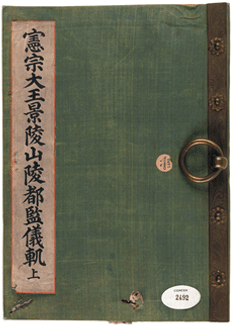 憲宗大王景陵山陵都監儀軌 上
2492